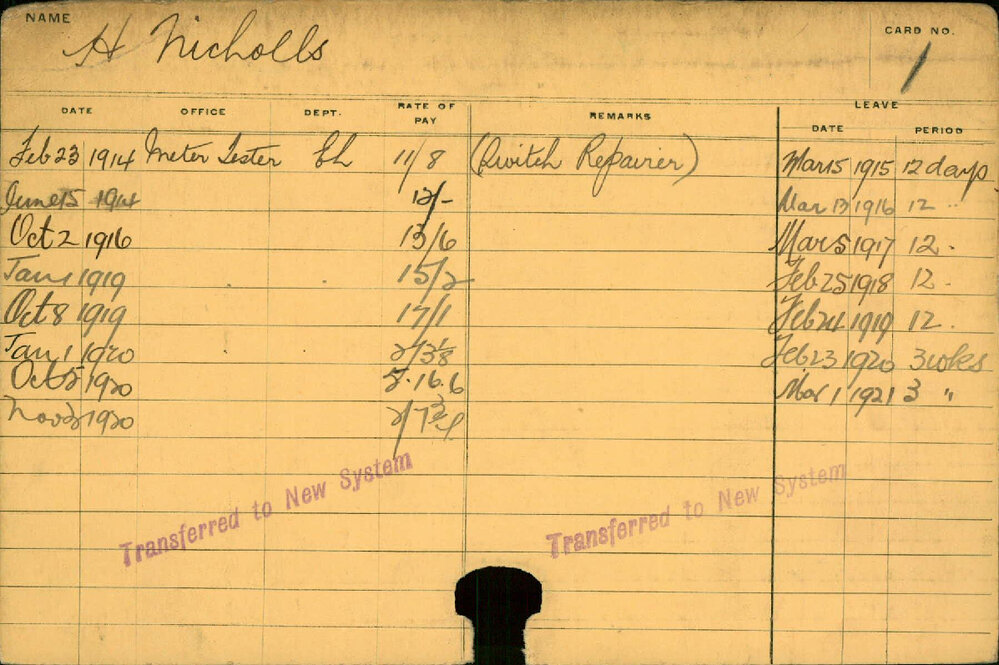 NAME H Nicholls CARD NO. 1
DATE OFFICE DEPT. RATE OF PAY REMARKS LEAVE
DATE PERIOD
Feb 23 1914 Meter Tester EL 11/8 (Switch Repairer) Mar 15 1915 12 days
June 15 1914 12/- Mar 13 1916 12 "
Oct 2 1916 13/6 Mar 5 1917 12 "
Jan 1 1919 15/2 Feb 25 1918 12 "
Oct 8 1919 17/1 Feb 24 1919 12 "
Jan 1 1920 2/3⅛ Feb 23 1920 3 wks
Oct 5 1920 5.16.6 Mar 1 1921 3 "
Nov 2 1920 2/7¾
Transferred to New System
Transferred to New System